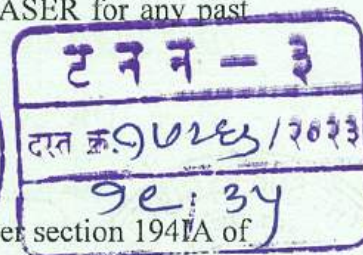 ASER for any past
ट न न - ३
दस्त क्र. १७२६ / २०२३
१९ / ३५
er section 194IA of